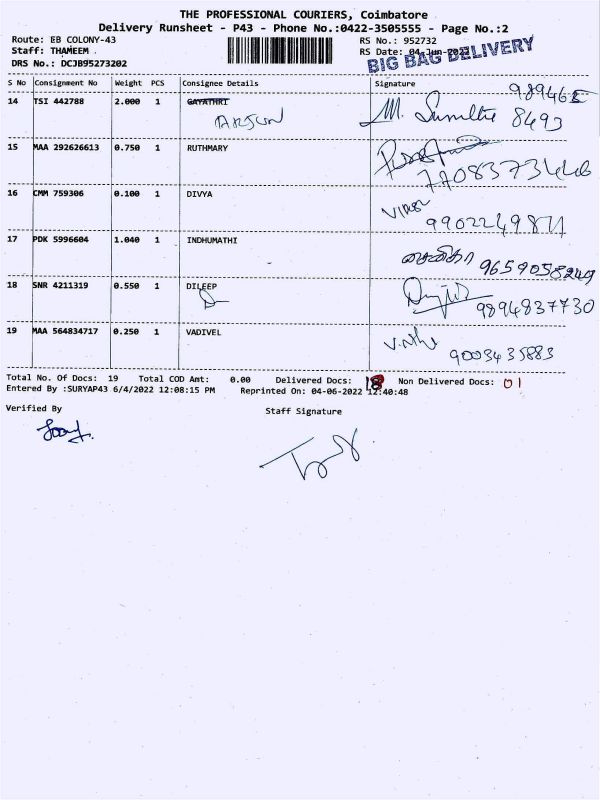 THE PROFESSIONAL COURIERS, Coimbatore
Delivery Runsheet - P43 - Phone No.:0422-3505555 - Page No.:2
Route: EB COLONY-43 RS No.: 952732
Staff: THAMEEM . RS Date: 04-Jun-2022
DRS No.: DCJB95273202 BIG BAG DELIVERY
S No Consignment No Weight PCS Consignee Details Signature
14 TSI 442788 2.000 1 GAYATHRI
ARJUN 8493
15 MAA 292626613 0.750 1 RUTHMARY
16 CMM 759306 0.100 1 DIVYA
17 PDK 5996604 1.040 1 INDHUMATHI
9659058249
18 SNR 4211319 0.550 1 DILEEP
9894837730
19 MAA 564834717 0.250 1 VADIVEL
9003435883
Total No. Of Docs: 19 Total COD Amt: 0.00 Delivered Docs: 18 Non Delivered Docs: 01
Entered By :SURYAP43 6/4/2022 12:08:15 PM Reprinted On: 04-06-2022 12:40:48
Verified By Staff Signature